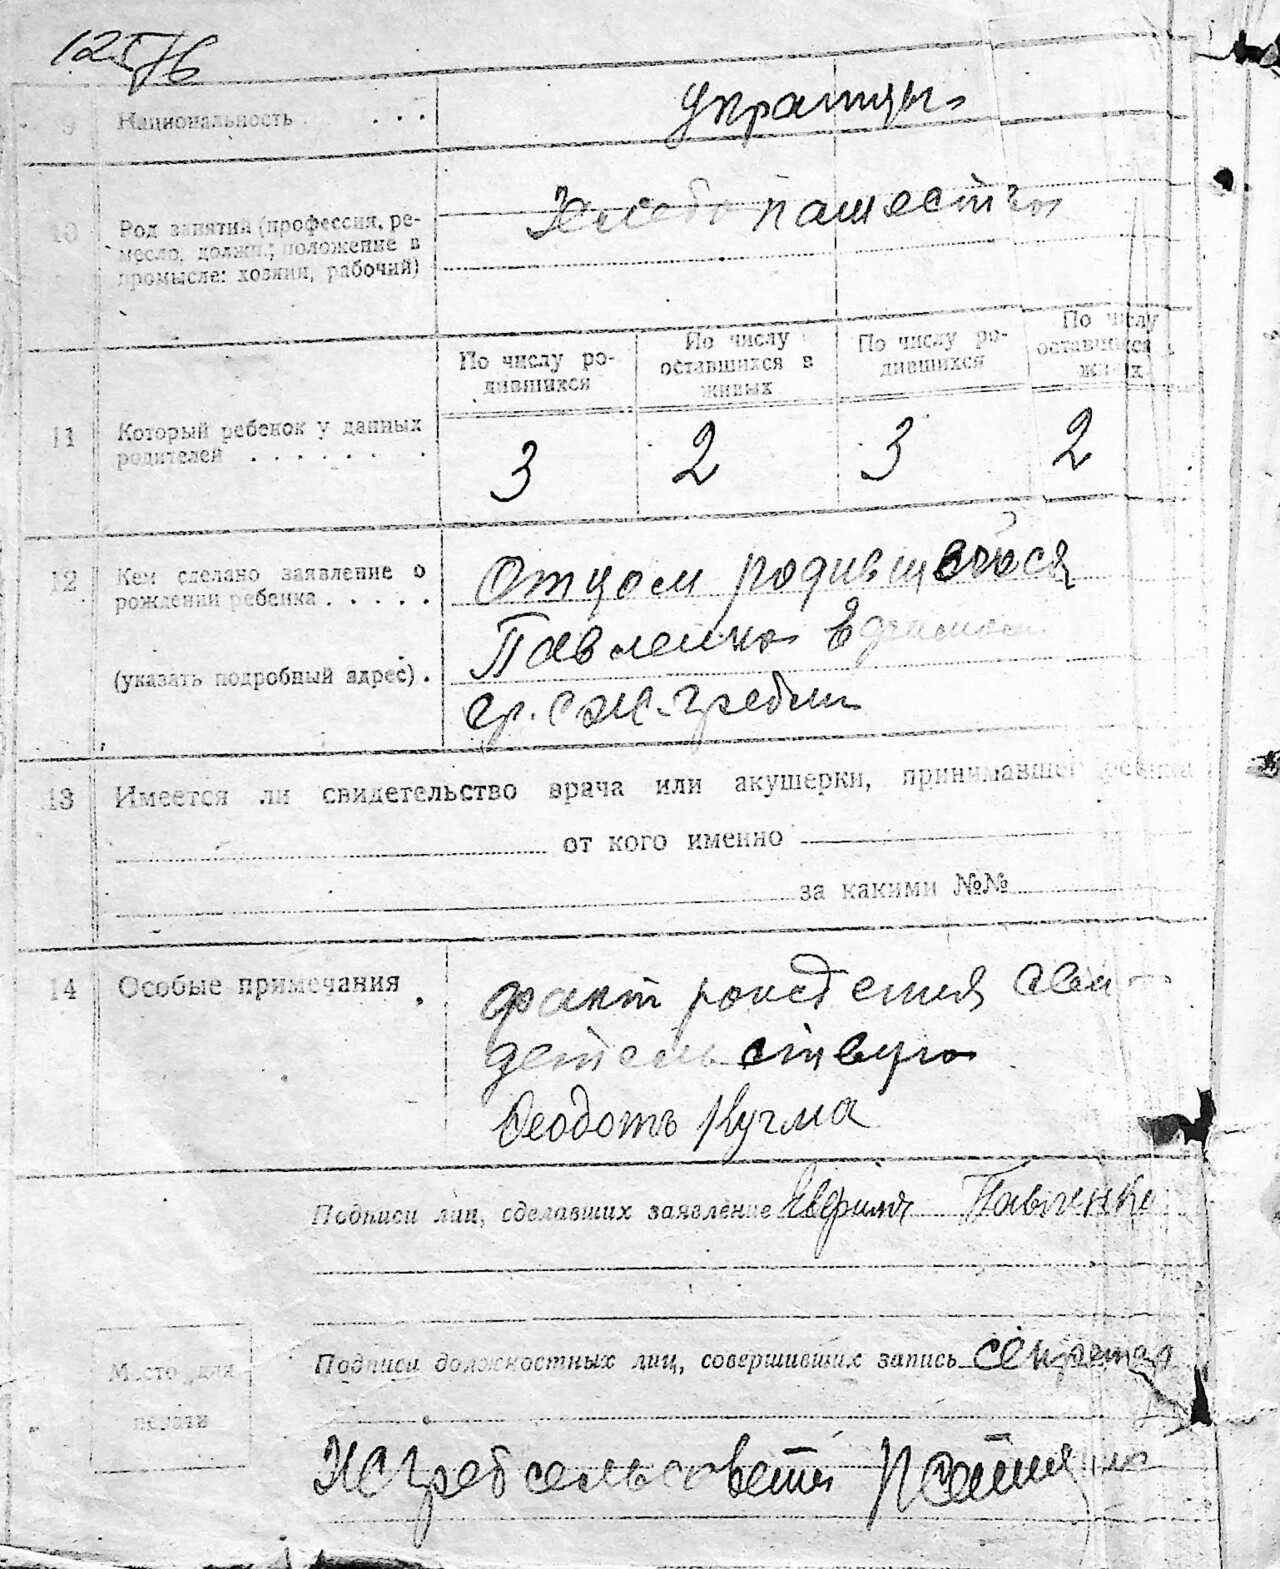 1257б
9 Национальность . . . . украинцы
10 Род занятий (профессия, ре-
месло, должн.; положение в
промысле: хозяин, рабочий)
Хлебопашество
11 Который ребенок у данных
родителей . . . . . . .
По числу ро-
дившихся
По числу
оставшихся в
живых
По числу ро-
дившихся
По числу
оставшихся в
живых
3 2 3 2
12 Кем сделано заявление о
рождении ребенка . . . . .
(указать подробный адрес) .
Отцом родившегося
Павленко
гр. с Ж-Гребли
13 Имеется ли свидетельство врача или акушерки, принимавшей ребенка
от кого именно
за какими №№
14 Особые примечания .
факт рождения сви-
детельствую
Феодотъ Кучма
Подписи лиц, сделавших заявление Евфимъ Павленко
Место для
печати
Подписи должностных лиц, совершивших запись секретар
ЖГребсельсовета